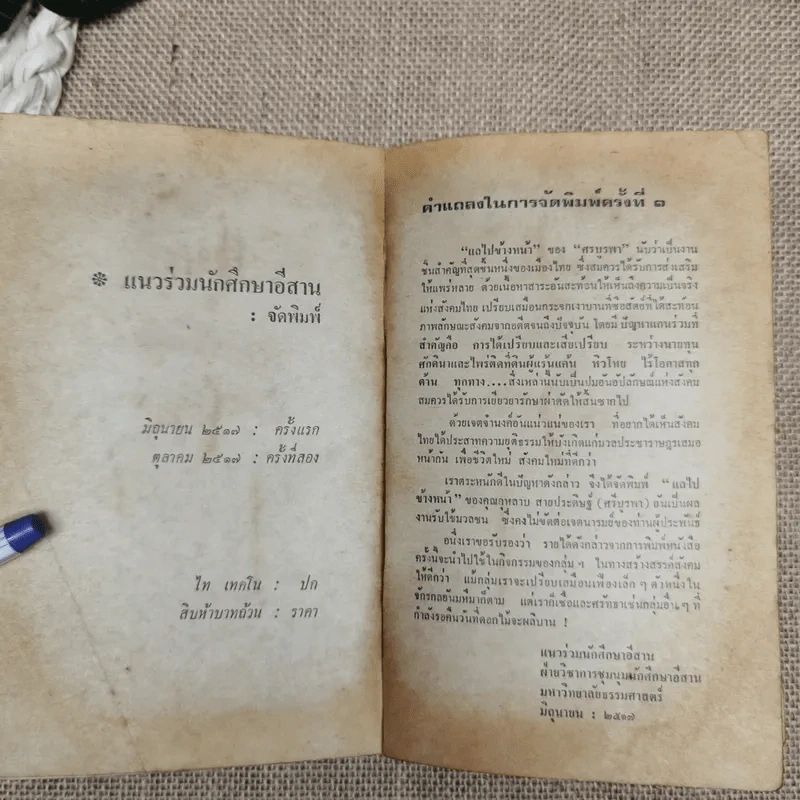 ❊ แนวร่วมนักศึกษาอีสาน
: จัดพิมพ์
มิถุนายน ๒๕๑๗ : ครั้งแรก
ตุลาคม ๒๕๑๗ : ครั้งที่สอง
ไท เทคโน : ปก
สิบห้าบาทถ้วน : ราคา
คำแถลงในการจัดพิมพ์ครั้งที่ ๑
"แลไปข้างหน้า" ของ "ศรีบูรพา" นับว่าเป็นงาน
ชิ้นสำคัญที่สุดชิ้นหนึ่งของเมืองไทย ซึ่งสมควรได้รับการส่งเสริม
ให้แพร่หลาย ด้วยเนื้อหาสาระอันสะท้อนให้เห็นถึงความเป็นจริง
แห่งสังคมไทย เปรียบเสมือนกระจกเงาบานที่ซื่อสัตย์ที่ได้สะท้อน
ภาพลักษณะสังคมจากอดีตจนถึงปัจจุบัน โดยมีปัญหาแกนร่วมที่
สำคัญคือ การได้เปรียบและเสียเปรียบ ระหว่างนายทุน
ศักดินาและไพร่ติดที่ดินผู้แร้นแค้น หิวโหย ไร้โอกาสทุก
ด้าน ทุกทาง....สิ่งเหล่านี้นับเป็นปมอันอัปลักษณ์แห่งสังคม
สมควรได้รับการเยียวยารักษาผ่าตัดให้สิ้นซากไป
ด้วยเจตจำนงค์อันแน่วแน่ของเรา ที่อยากได้เห็นสังคม
ไทยได้ประสาทความยุติธรรมให้บังเกิดแก่มวลประชาราษฎรเสมอ
หน้ากัน เพื่อชีวิตใหม่ สังคมใหม่ที่ดีกว่า
เราตระหนักดีในปัญหาดังกล่าว จึงได้จัดพิมพ์ "แลไป
ข้างหน้า" ของคุณกุหลาบ สายประดิษฐ์ (ศรีบูรพา) อันเป็นผล
งานรับใช้มวลชน ซึ่งคงไม่ขัดต่อเจตนารมย์ของท่านผู้ประพันธ์
อนึ่งเราขอรับรองว่า รายได้ดังกล่าวจากการพิมพ์หนังสือ
ครั้งนี้จะนำไปใช้ในกิจกรรมของกลุ่ม ๆ ในทางสร้างสรรค์สังคม
ให้ดีกว่า แม้กลุ่มเราจะเปรียบเสมือนเฟืองเล็ก ๆ ตัวหนึ่งใน
จักรกลอันมหึมาก็ตาม แต่เราก็เชื่อและศรัทธาเช่นกลุ่มอื่น ๆ ที่
กำลังรอคืนวันที่ดอกไม้จะผลิบาน !
แนวร่วมนักศึกษาอีสาน
ฝ่ายวิชาการชุมนุมนักศึกษาอีสาน
มหาวิทยาลัยธรรมศาสตร์
มิถุนายน : ๒๕๑๗